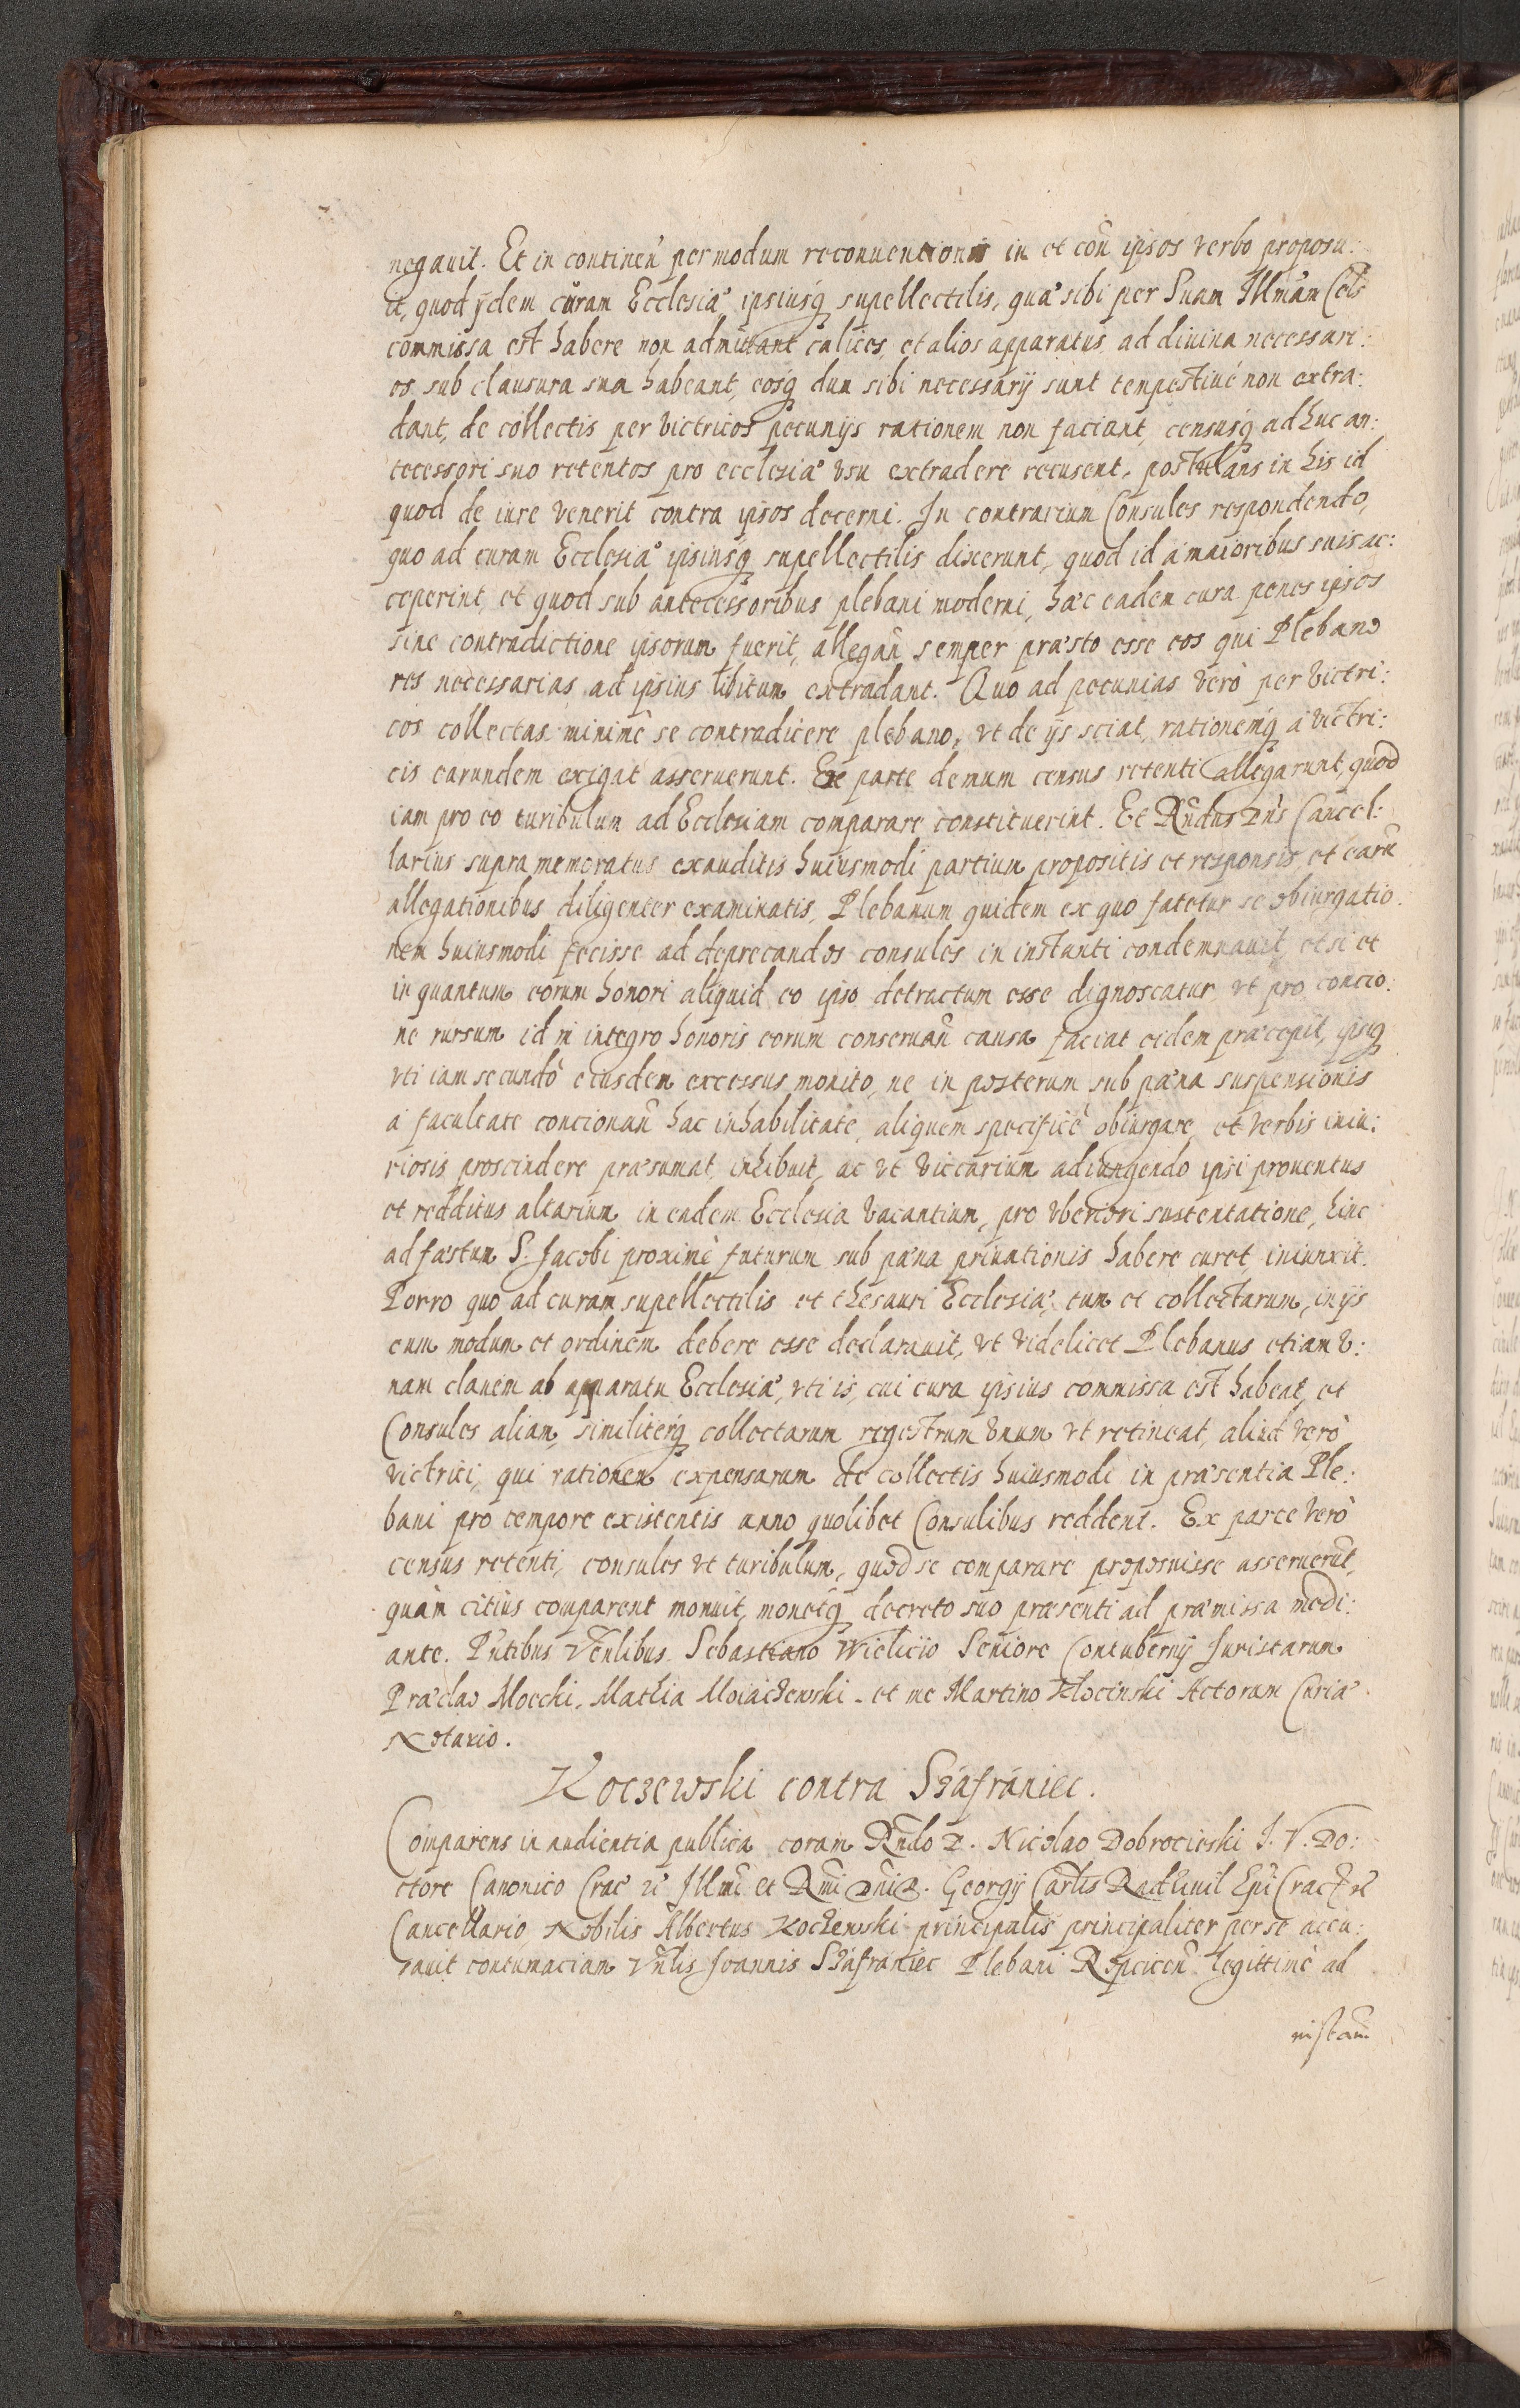 negauit. Et in contineñ per modum reconuentionis in et coñ ipsos verbo proposu:
it, quod ijdem curam Ecclesiæ ipsiusq supellectilis, quæ sibi per Suam Illmãm Cels
commissa est habere non admittant calices, et alios apparatus ad diuina necessari:
os sub clausura sua habeant, eosq dum sibi necessarij sunt tempestiuè non extra:
dant, de collectis per victricos pecunijs rationem non faciant, censusq adhuc an:
tecessori suo retentos pro ecclesiæ vsu extradere recusent, postulans in his id
quod de iure venerit contra ipsos decerni. In contrarium Consules respondendo,
quo ad curam Ecclesiæ ipsiusq supellectilis dixerunt, quod id á maioribus suis ac:
ceperint, et quod sub antecessoribus plebani moderni, hæc eadem cura penes ipsos
sine contradictione ipsorum fuerit, allegañ semper præsto esse eos qui Plebano
res necessarias ad ipsius libitum extradant. Quo ad pecunias verò per victri:
cos collectas minimè se contradicere plebano, vt de ijs sciat, rationemq á victri:
cis earundem exigat asseruerunt. Ex parte demum census retenti allegarunt, quod
iam pro eo turibulum ad Ecclesiam comparare constituerint. Et Rñdus Dñs Cancel:
larius supra memoratus exauditis huiusmodi partium propositis et responsis, et earũ
allegationibus diligenter examinatis, Plebanum quidem ex quo fatetur se obiurgatio:
nem huiusmodi fecisse ad deprecandos consules in instanti condemnauit, et si et
in quantum eorum honori aliquid eo ipso detractum esse dignoscatur, vt pro concio:
ne rursum id in integro honoris eorum conseruañ causa faciat eidem præcepit, ipsiq
vti iam secundò eiusdem excessus monito, ne in posterum sub pæna suspensionis
á facultate concionañ hac inhabilitate, aliquem specificè obiurgare, et verbis iniu:
riosis proscindere præsumat inhibuit, ac vt viccarium adiungendo ipsi prouentus
et redditus altarium in eadem Ecclesia vacantium, pro vberiori sustentatione, hinc
ad fæstum S. Jacobi proximè futurum sub pæna priuationis habere curet iniunxit.
Porro quo ad curam supellectilis et thesauri Ecclesiæ, tum et collectarum, in ijs
eum modum et ordinem debere esse declarauit, vt videlicet Plebanus etiam v:
nam clauem ab apparatu Ecclesiæ, vti is, cui cura ipsius commissa est habeat, et
Consules aliam, similiterq collectarum regestrum vnum vt retineat, aliud verò
victrici, qui rationem expensarum de collectis huiusmodi in præsentia Ple:
bani pro tempore existentis anno quolibet Consulibus reddent. Ex parte verò
census retenti, consules vt turibulum, quod se comparare proposuisse asseruerũt,
quàm citiùs comparent monuit, monetq decreto suo præsenti ad præmissa medi:
ante. Pñtibus Vẽnlibus Sebastiano Wielicio Seniore Contubernij Juristarum
Præclao Mocchi, Mathia Moiachewski, et me Martino Klocinski Actorum Curiæ
Notario.
Koczewski contra Száfrániec.
Comparens in audientia publica coram Rñdo D. Nicolao Dobrocieski J. V. Do:
ctore Canonico Craĉ &c Illmi et Rmi Dni D. Georgij Carlis Radziuil Epi Craĉ &c
Cancellario, Nobilis Albertus Koczewski principalis principaliter per se accu:
sauit contumaciam Vñlis Joannis Száfraniec Plebani Ropcicen legittimè ad
instañ